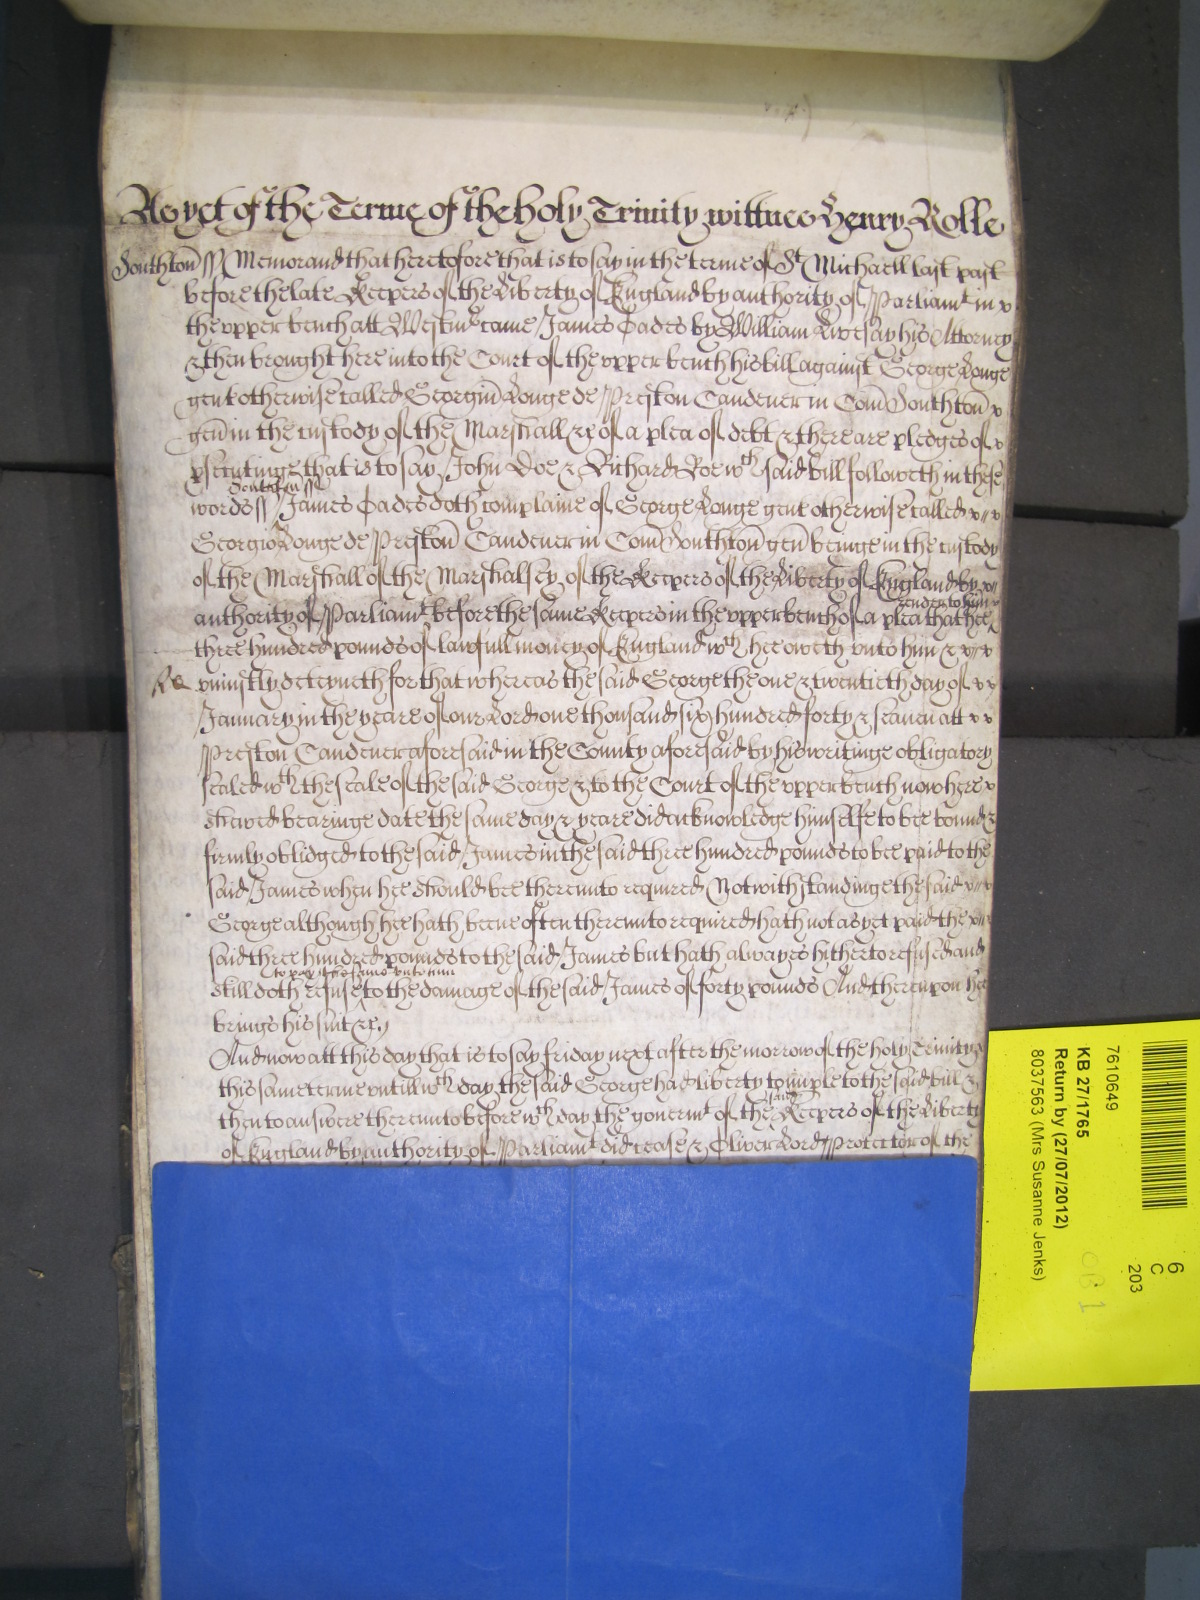 As yet of the Terme of the holy Trinity wittnes Henry Rolle
Southton ss Memorand that heretofore that is to say in the terme of St Michaell last past
before the late Keepers of the Liberty of England by authority of Parliamt in
the upper bench att Westmr came James Eades by William Livesay his Attorney
& then brought here into the Court of the upper bench his bill against George Longe
gent otherwise called Georgiu Longe de Preston Candever in Com Southton
gen in the custody of the Marshall &c of a plea of debt & there are pledges of
psecutinge that is to say John Doe & Richard Roe wch said bill followeth in these
Southton ss
words ss James Eades doth complaine of George Longe gent otherwise called
Georgio Longe de Preston Candever in Com Southton gen beinge in the custody
of the Marshall of the Marshalsey of the Keepers of the Liberty of England by
render to him
authority of Parliamt before the same Keepers in the upper bench of a plea that hee
three hundred pounds of lawfull money of England wch hee oweth unto him &
Ro uniustly deteyneth for that whereas the said George the one & twentieth day of
January in the yeare of our Lord one thousand six hundred forty & seaven att
Preston Candever aforesaid in the County aforesaid by his writinge obligatory
sealed wth the seale of the said George & to the Court of the upper bench now here
shewed bearinge date the same day & yeare did acknowledge himselfe to bee bound &
firmly oblidged to the said James in the said three hundred pounds to bee paid to the
said James when hee should bee thereunto required Notwithstandinge the said
George although hee hath beene often thereunto required hath not as yet paid the
said three hundred pounds to the said James but hath alwayes hitherto refused and
to pay the same unto him
still doth refuse to the damage of the said James of forty pounds And thereupon hee
brings his suit &c
And now att this day that is to say friday next after the morrow of the holy Trinity
this same terme untill wch day the said George had liberty to imple to the said bill &
then to answere thereunto before wch day the governmt of the said Keepers of the Liberty
of England by authority of Parliamt did cease & Oliver Lord Protector of the
7610649
KB 27/1765
Return by (27/07/2012)
8037563 (Mrs Susanne Jenks)
6
C
203